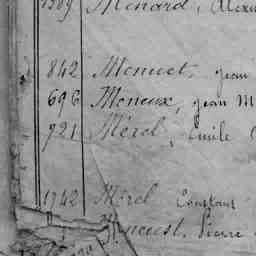 1509 Menard, Alexa
842 Menuet, Jean
696 Meneux, Jean M
721 Mérel, Emile
1742 Mérel Constant
Pierre